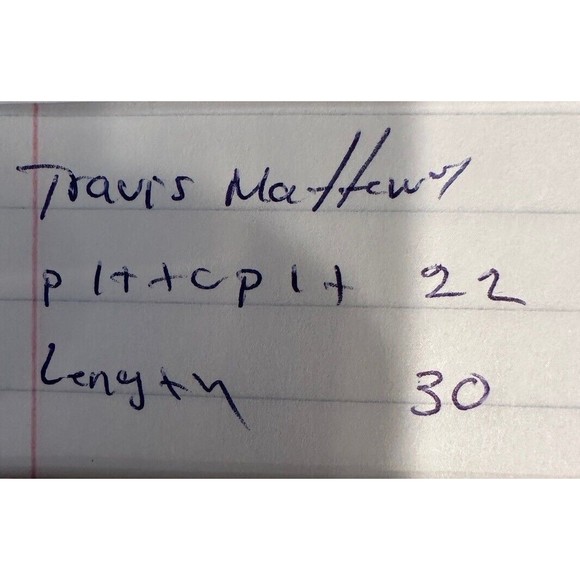 Travis Mathews
pit to pit 22
Length 30